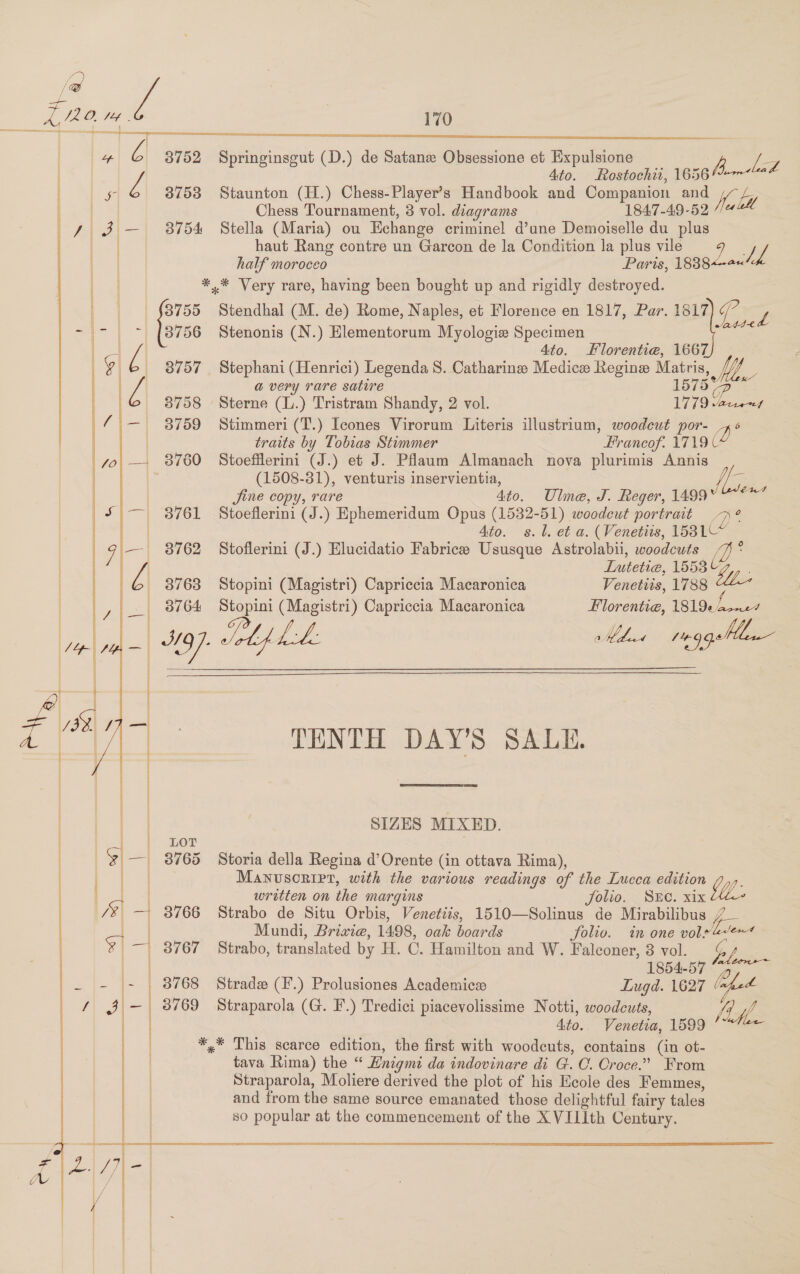 170
4 6 3752 Springinsgut (D.) de Satanæ Obsessione et Expulsione
4to. Rostochii, 1656
5 6 3753 Staunton (H.) Chess-Player's Handbook and Companion and
Chess Tournament, 3 vol. diagrams 1847-49-52
1 3 — 3754 Stella (Maria) ou Echange criminel d'une Demoiselle du plus
haut Rang contre un Garcon de la Condition la plus vile
half morocco Paris, 1838
*** Very rare, having been bought up and rigidly destroyed.
3755 Stendhal (M. de) Rome, Naples, et Florence en 1817, Par. 1817
- - - 3756 Stenonis (N.) Elementorum Myologiæ Specimen
4to. Florentiæ, 1667
8 6 3757 Stephani (Henrici) Legenda S. Catharinæ Medicæ Reginæ Matris,
a very rare satire 1575
6 3758 Sterne (L.) Tristram Shandy, 2 vol. 1779
1 — 3759 Stimmeri (T.) Icones Virorum Literis illustrium, woodcut por-
traits by Tobias Stimmer Francof. 1719
10 — 3760 Stoefflerini (J.) et J. Pflaum Almanach nova plurimis Annis
(1508-31), venturis inservientia,
fine copy, rare 4to. Ulmæ, J. Reger, 1499
5 — 3761 Stoeflerini (J.) Ephemeridum Opus (1532-51) woodcut portrait
4to. s. l. et a. (Venetiis, 1531
9 — 3762 Stoflerini (J.) Elucidatio Fabricæ Ususque Astrolabii, woodcuts
Lutetiæ, 1553
6 3763 Stopini (Magistri) Capriccia Macaronica Venetiis, 1788
1 — 3764 Stopini (Magistri) Capriccia Macaronica Florentiæ, 1819
14 14 — 3197. Poliphili Aldus 1499 Allen
TENTH DAY'S SALE.
SIZES MIXED.
LOT
8 — 3765 Storia della Regina d'Orente (in ottava Rima),
Manuscript, with the various readings of the Lucca edition
written on the margins folio. Sec. xix
18 — 3766 Strabo de Situ Orbis, Venetiis, 1510—Solinus de Mirabilibus
Mundi, Brixiæ, 1498, oak boards folio. in one vol.
8 — 3767 Strabo, translated by H. C. Hamilton and W. Falconer, 3 vol.
1854-57
- - - 3768 Stradæ (F.) Prolusiones Academicæ Lugd. 1627
1 3 — 3769 Straparola (G. F.) Tredici piacevolissime Notti, woodcuts,
4to. Venetia, 1599
*** This scarce edition, the first with woodcuts, contains (in ot-
tava Rima) the “ Enigmi da indovinare di G. C. Croce.” From
Straparola, Moliere derived the plot of his Ecole des Femmes,
and from the same source emanated those delightful fairy tales
so popular at the commencement of the XVIIIth Century.